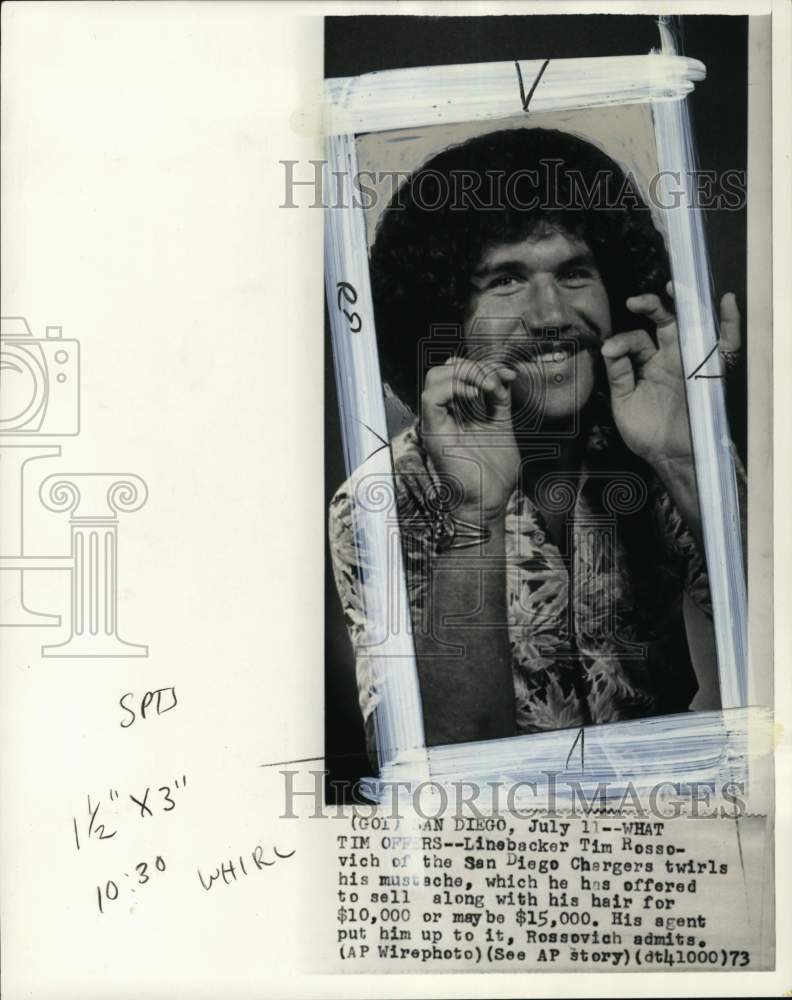 HISTORIC IMAGES
SPTS
1½" X 3"
10:30 WHIRL
HISTORIC IMAGES
(GO1) SAN DIEGO, July 11--WHAT
TIM OFFERS--Linebacker Tim Rosso-
vich of the San Diego Chargers twirls
his mustache, which he has offered
to sell along with his hair for
$10,000 or maybe $15,000. His agent
put him up to it, Rossovich admits.
(AP Wirephoto)(See AP story)(dt41000)73